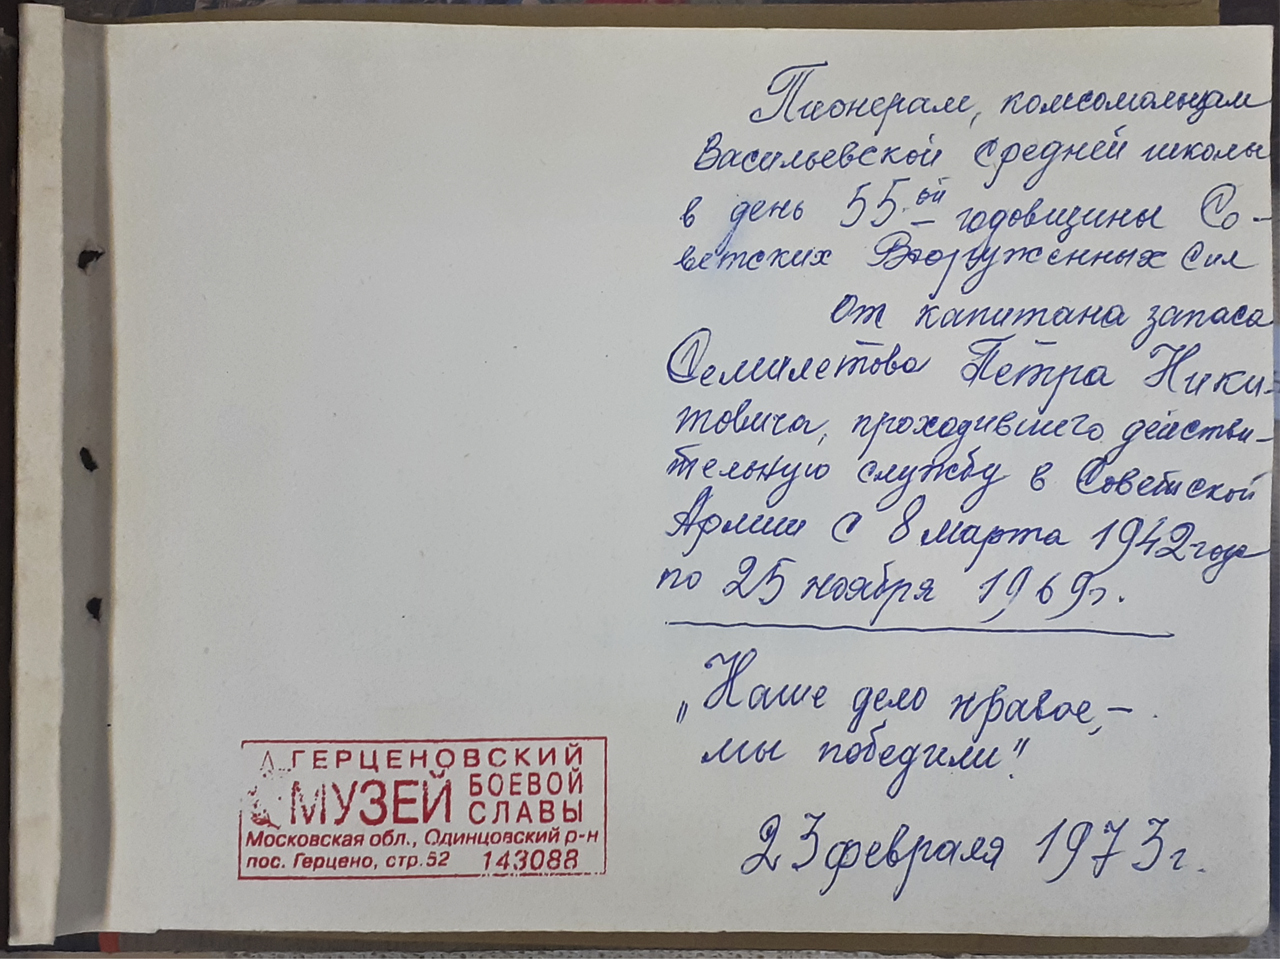 Пионерам, комсомольцам
Васильевской средней школы
в день 55-ой годовщины Со-
ветских Вооруженных Сил
От капитана запаса
Семилетова Петра Ники-
товича, проходившего действи-
тельную службу в Советской
Армии с 8 марта 1942 года
по 25 ноября 1969г.
„Наше дело правое, –
мы победили"!
23 февраля 1973г.
ГЕРЦЕНОВСКИЙ
МУЗЕЙ БОЕВОЙ СЛАВЫ
Московская обл., Одинцовский р-н
пос. Герцено, стр. 52 143088